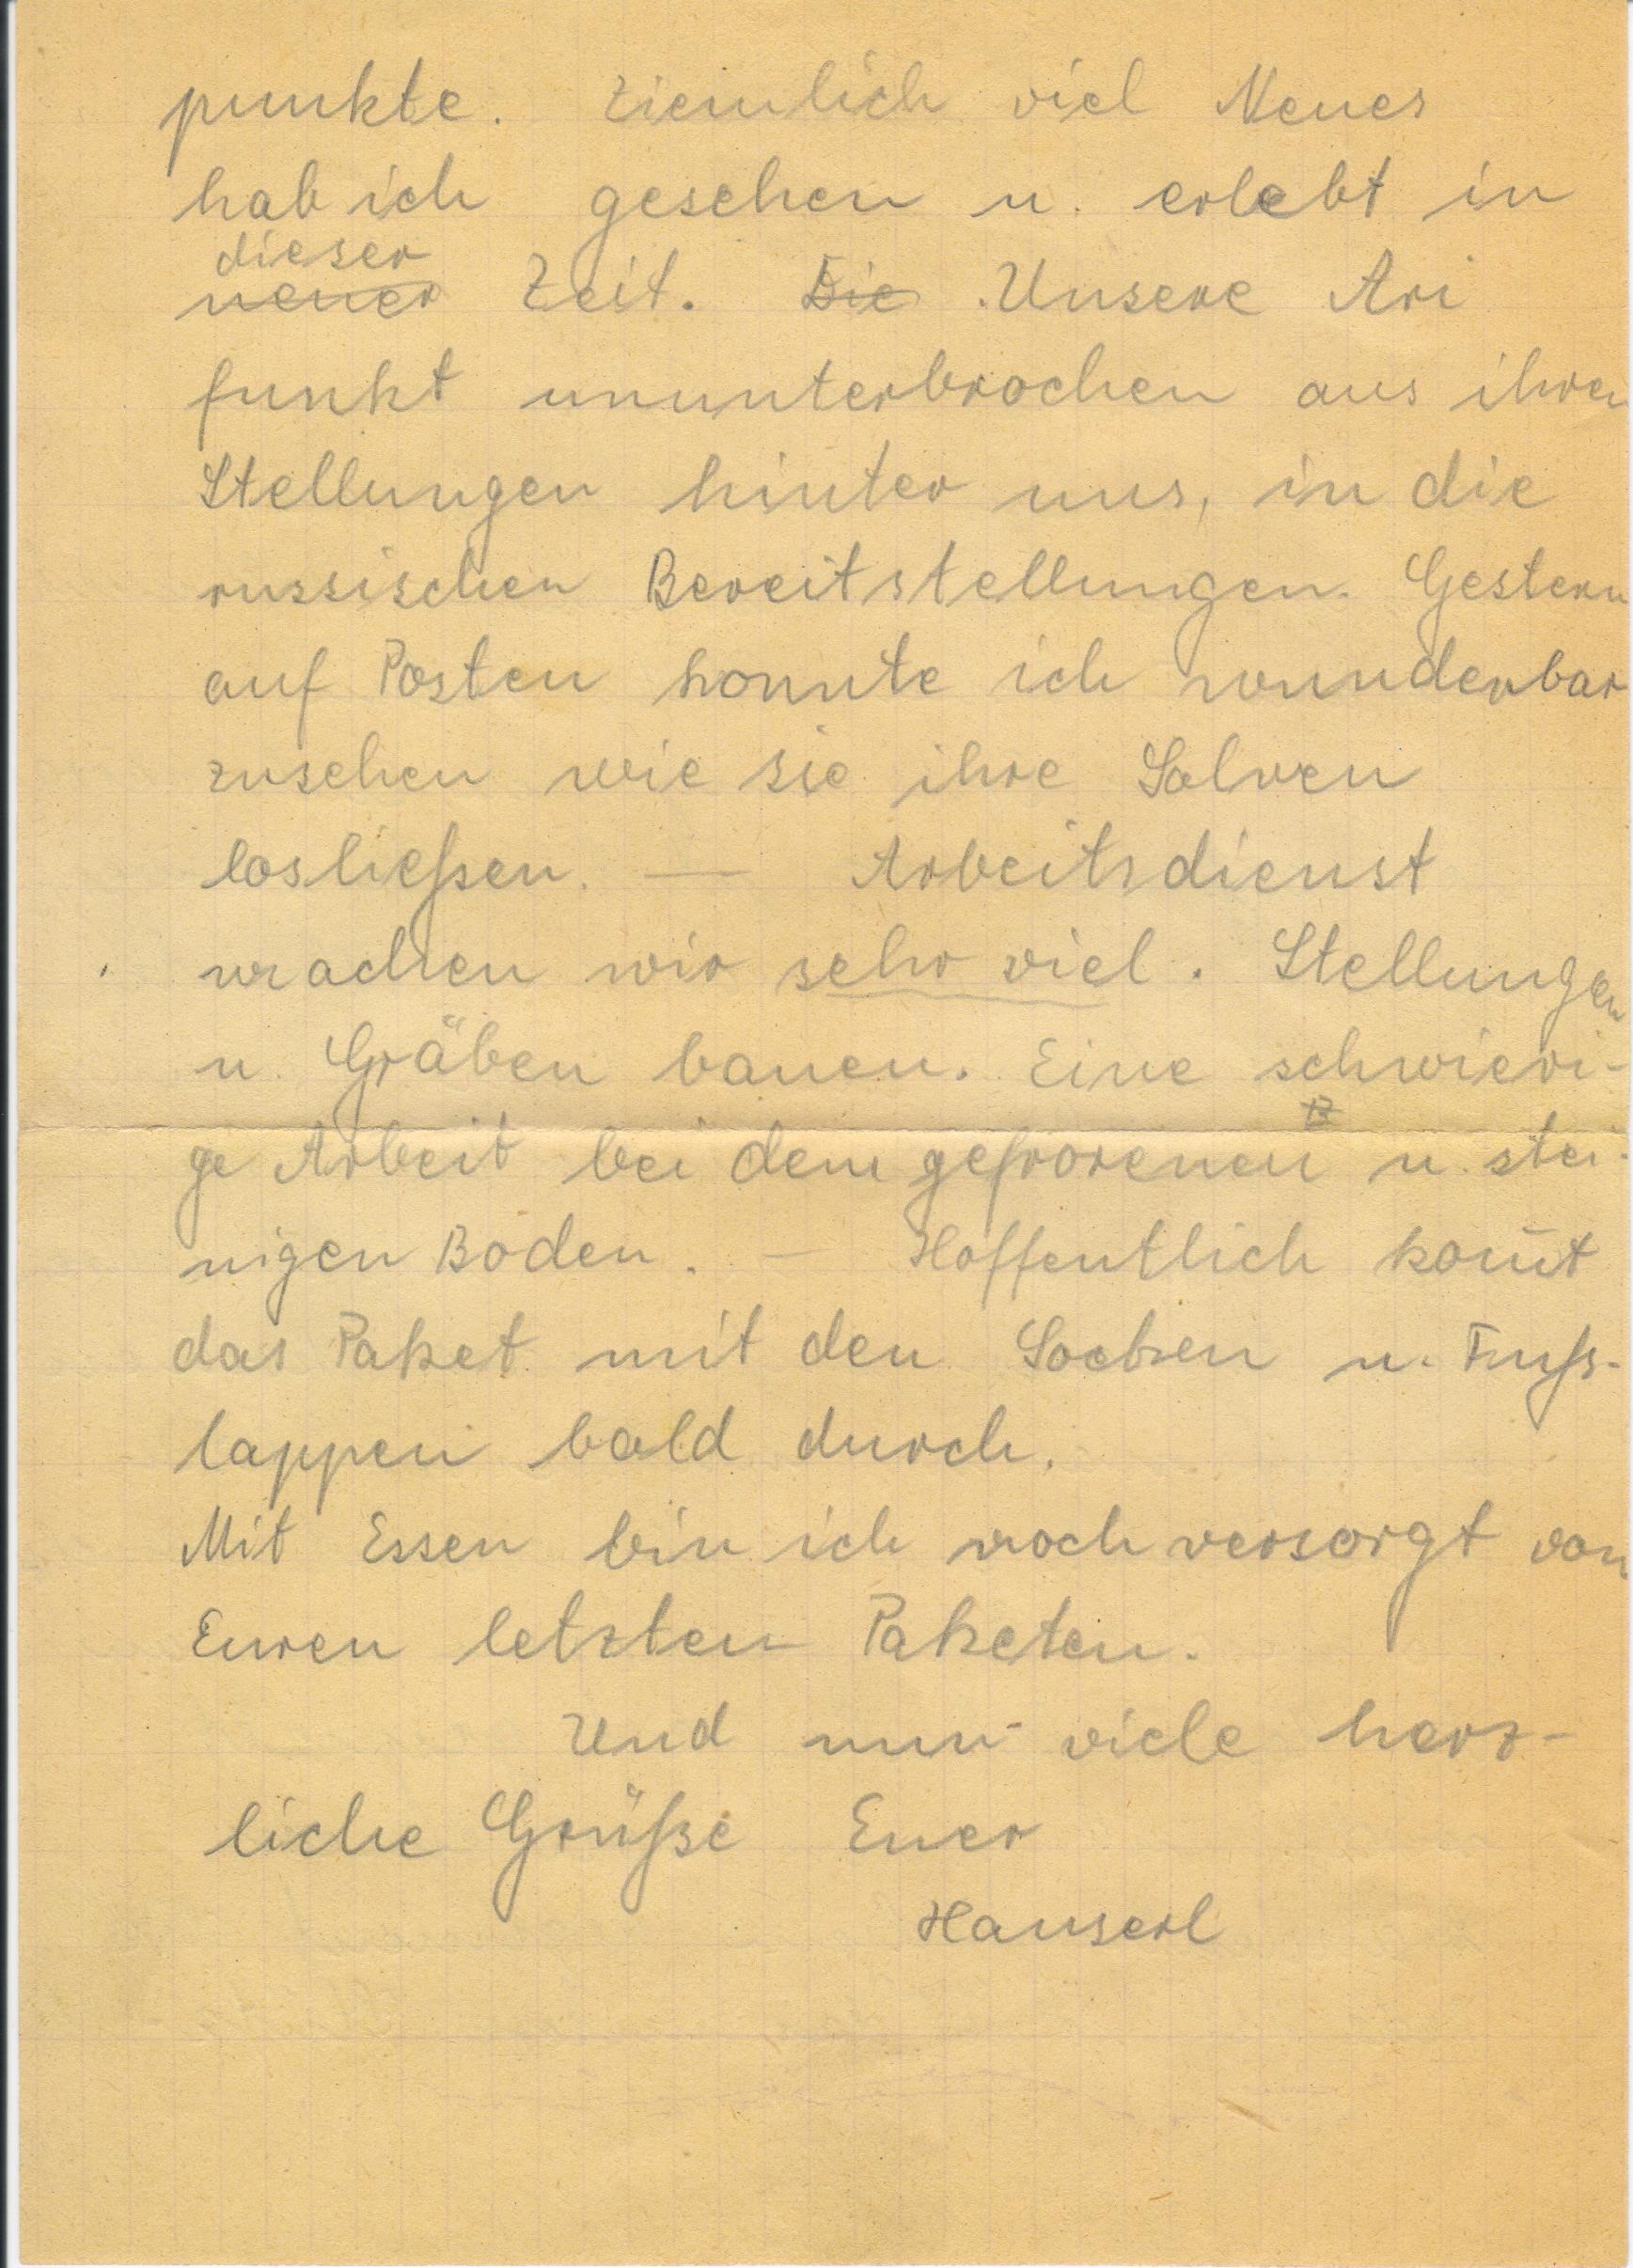 punkte. Ziemlich viel Neues
hab ich gesehen u. erlebt in
dieser
neuer Zeit. Die Unsere Ari
funkt ununterbrochen aus ihren
Stellungen hinter uns, in die
russischen Bereitstellungen. Gestern
auf Posten konnte ich wunderbar
zusehen wie sie ihre Salven
losließen. — Arbeitsdienst
machen wir sehr viel. Stellungen
u. Gräben bauen. Eine schwieri-
ge Arbeit bei dem gefrorenen u. stei-
nigen Boden. — Hoffentlich kom̄t
das Paket mit den Socken u. Fuß-
lappen bald durch.
Mit Essen bin ich noch versorgt von
Euren letzten Paketen.
Und nun viele herz-
liche Grüße Euer
Hanserl